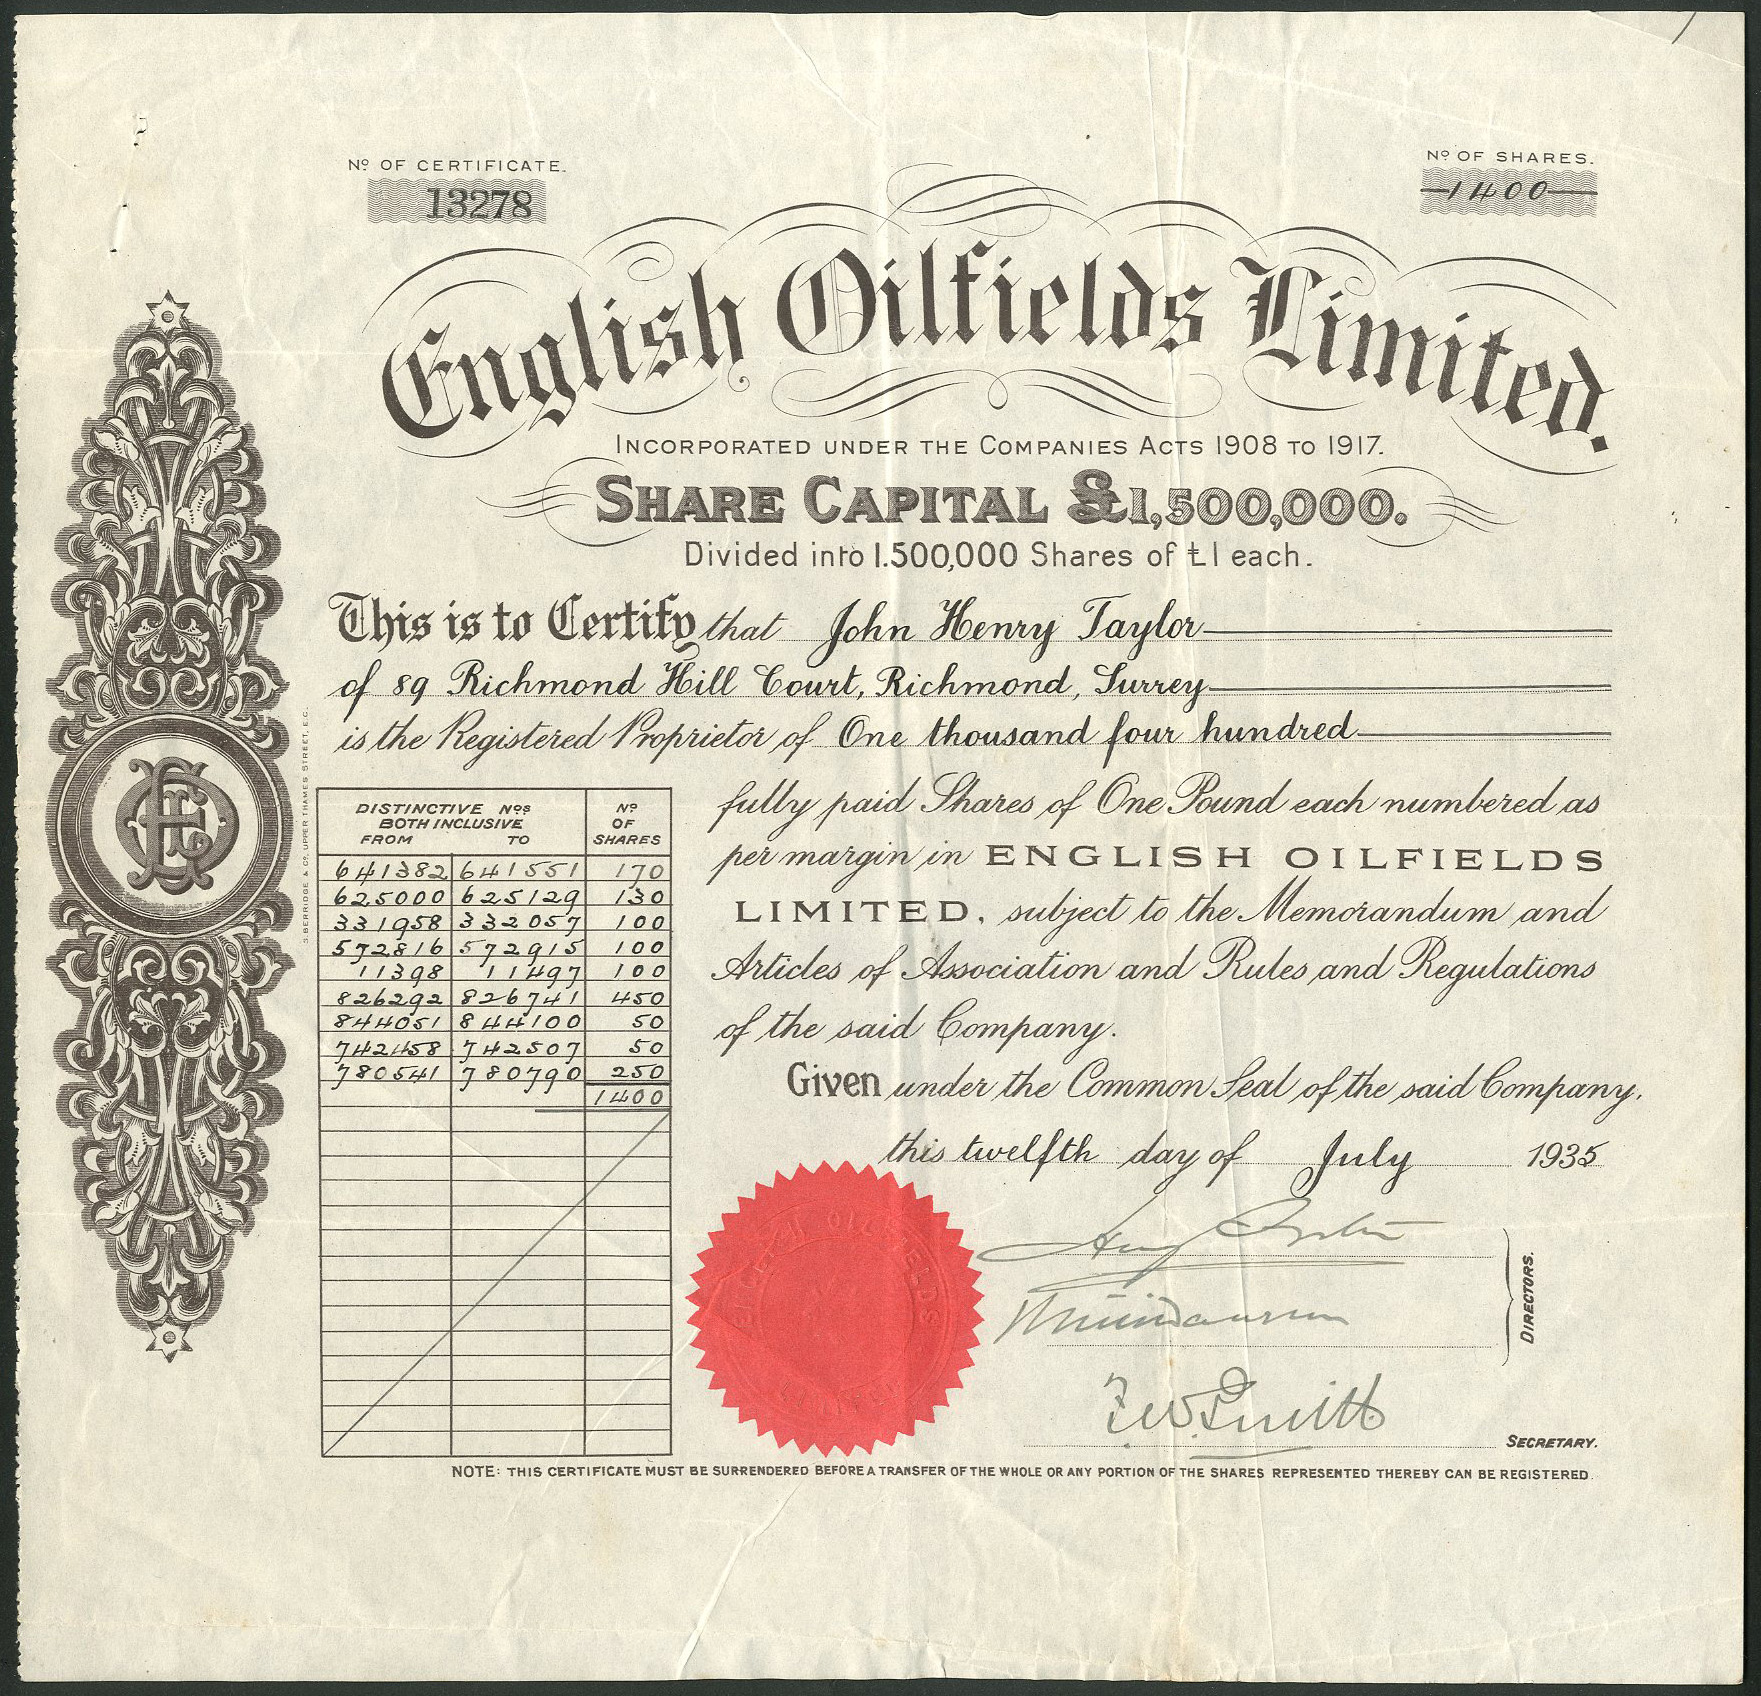 Nº OF CERTIFICATE.
13278
Nº OF SHARES.
1400
English Oilfields Limited.
INCORPORATED UNDER THE COMPANIES ACTS 1908 TO 1917.
SHARE CAPITAL £1,500,000.
Divided into 1.500,000 Shares of £1 each.
This is to Certify that John Henry Taylor
of 89 Richmond Hill Court, Richmond, Surrey
is the Registered Proprietor of One thousand four hundred
fully paid Shares of One Pound each numbered as
per margin in ENGLISH OILFIELDS
LIMITED, subject to the Memorandum and
Articles of Association and Rules and Regulations
of the said Company.
Given under the Common Seal of the said Company,
this twelfth day of July 1935
DISTINCTIVE Nºs BOTH INCLUSIVE
FROM TO
Nº OF SHARES
641382 641551 170
625000 625129 130
331958 332057 100
572816 572915 100
11398 11497 100
826292 826741 450
844051 844100 50
742458 742507 50
780541 780790 250
1400
S. BERRIDGE & Cº. UPPER THAMES STREET, E.C.
DIRECTORS.
SECRETARY.
NOTE: THIS CERTIFICATE MUST BE SURRENDERED BEFORE A TRANSFER OF THE WHOLE OR ANY PORTION OF THE SHARES REPRESENTED THEREBY CAN BE REGISTERED.